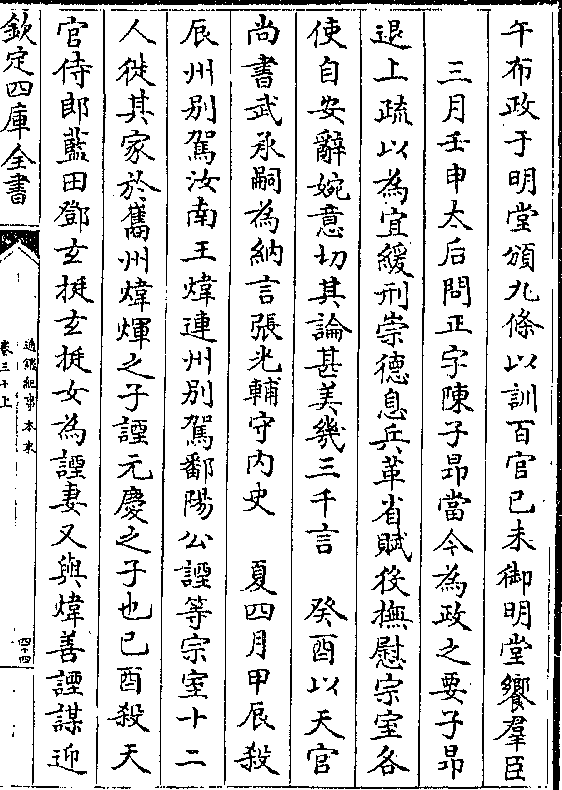 午布政于明堂頒九條以訓百官己未御明堂饗羣臣
三月壬申太后問正字陳子昻當今為政之要子昻
退上疏以為宜緩刑崇德息兵革省賦役撫慰宗室各
使自安辭婉意切其論甚美幾三千言　癸酉以天官
尚書武承嗣為納言張光輔守内史　夏四月甲辰殺
辰州别駕汝南王煒連州别駕鄱陽公諲等宗室十二
人徙其家於巂州煒惲之子諲元慶之子也己酉殺天
官侍郎藍田鄧玄挺玄挺女為諲妻又與煒善諲謀迎
欽定四庫全書
通鑑紀事本末
卷三十上
四十四